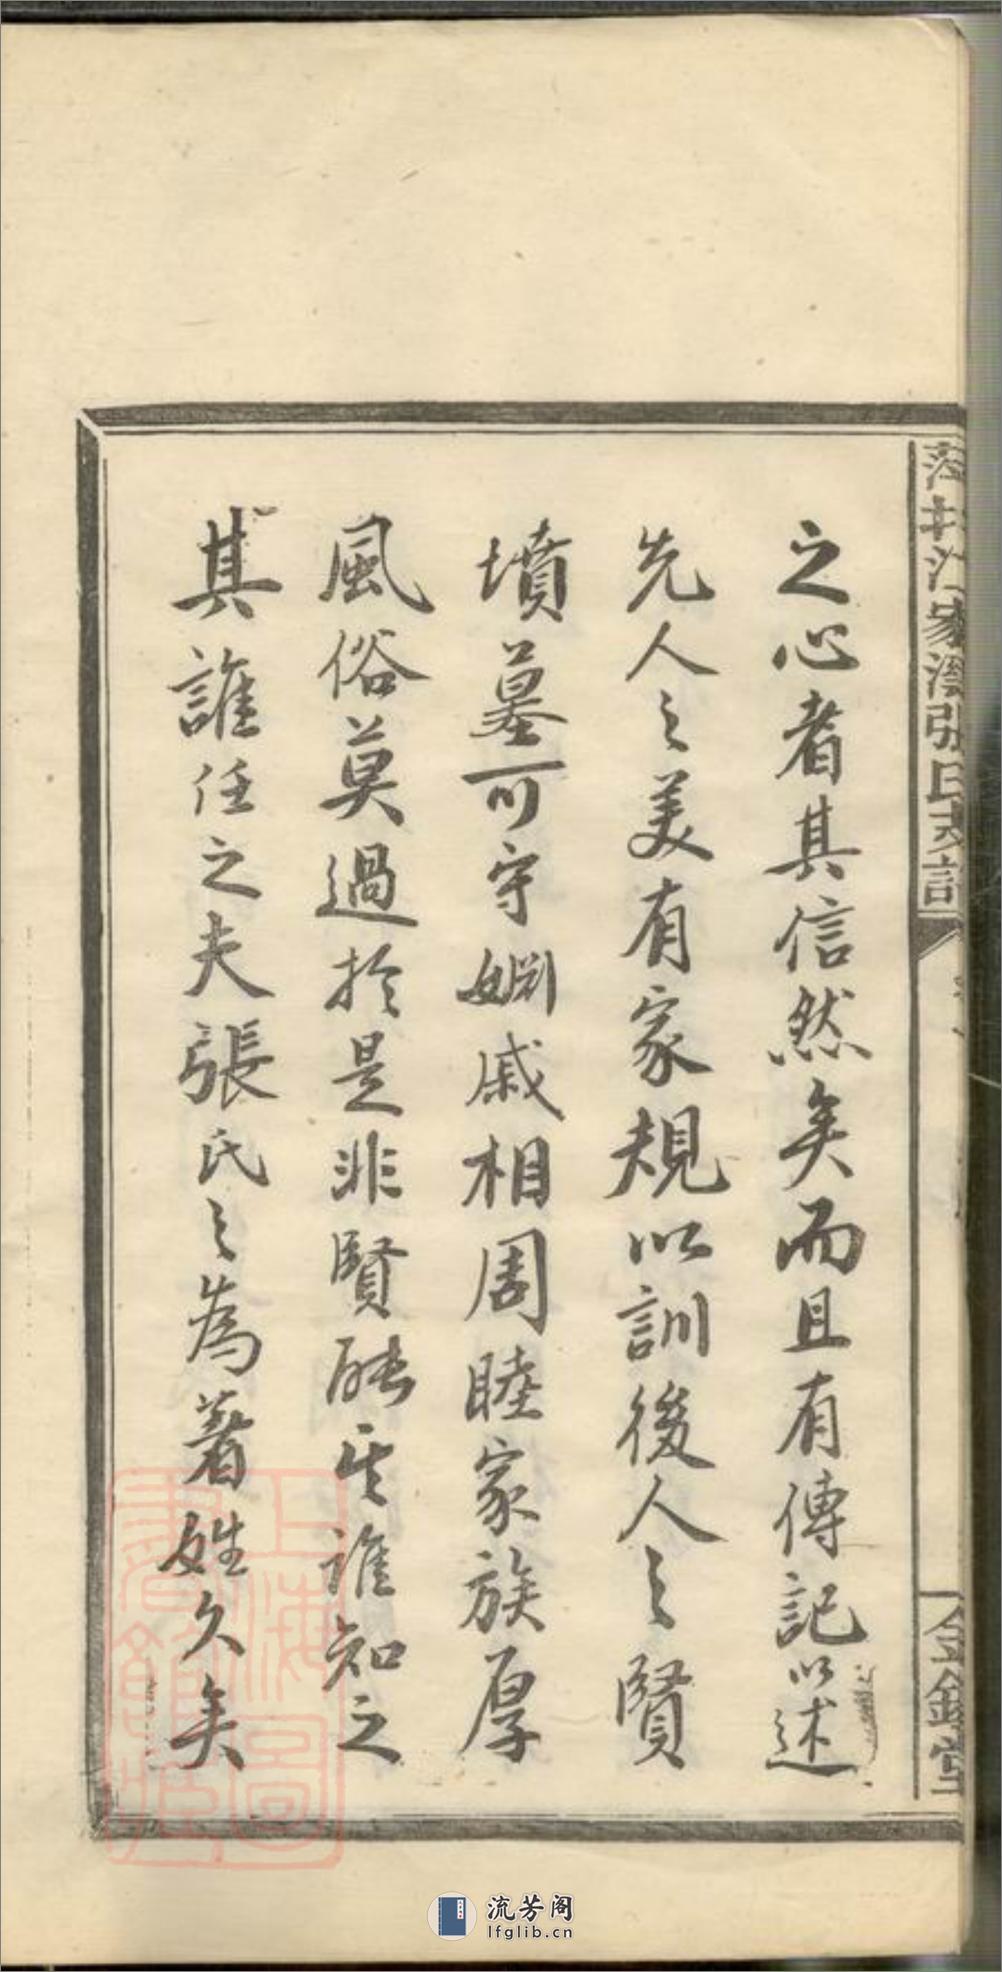 之心者其信然矣而且有傳記以述
先人之美有家規以訓後人之賢
墳墓可守姻戚相周睦家族厚
風俗莫過於是非賢能其誰知之
其誰任之夫張氏之為著姓久矣
張氏支譜
金鑑堂
上海圖書館藏
流芳阁
lfglib.cn